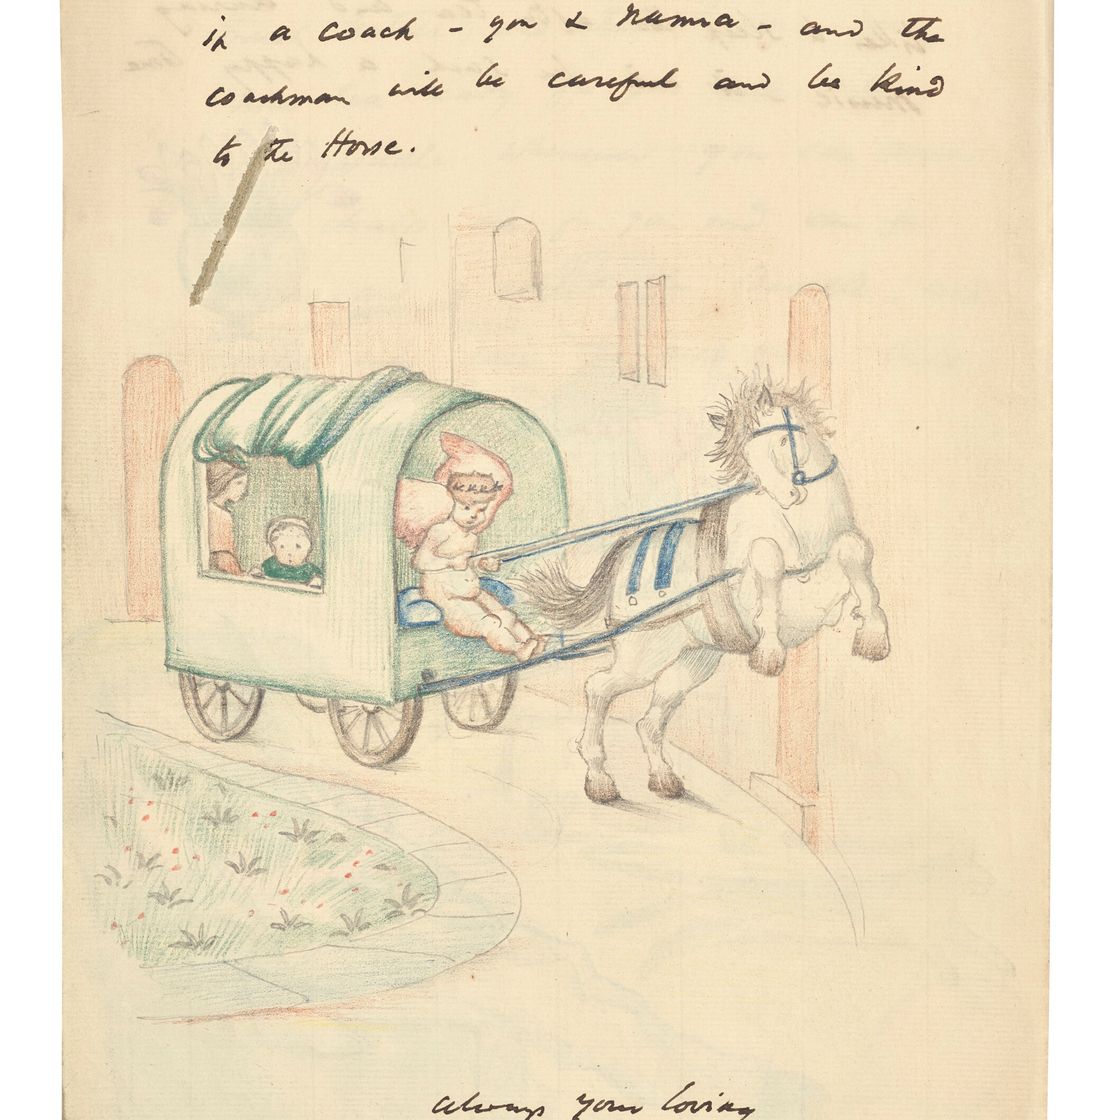 in a coach - you & Mamma - and the
coachman will be careful and be kind
to the Horse.
always your loving